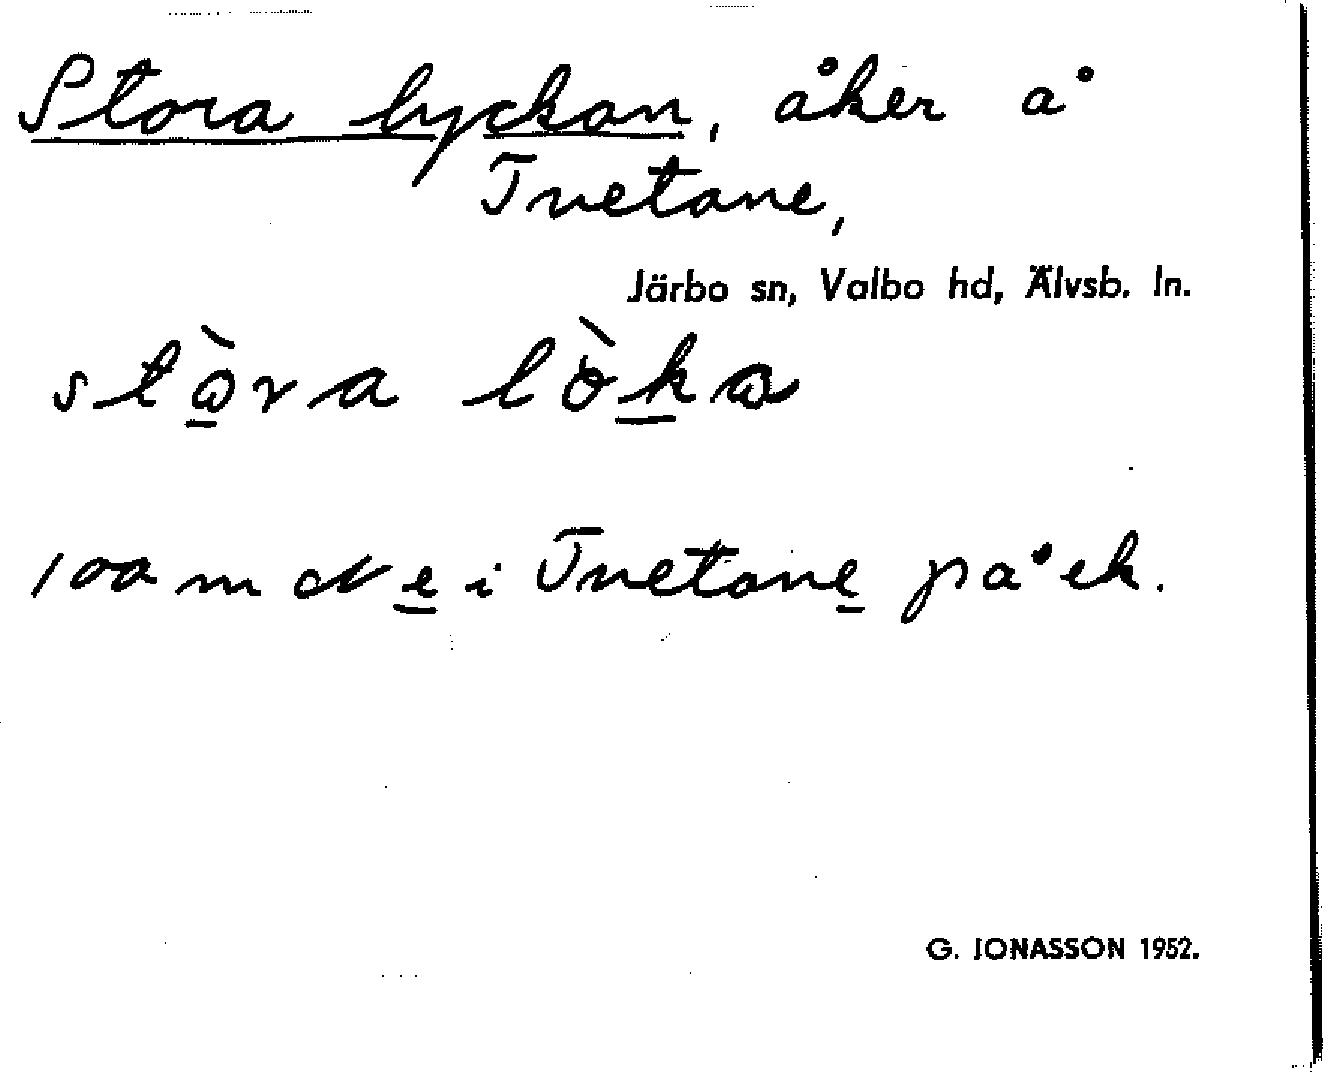 Stora lyckan, åker å
Tvetane,
Järbo sn, Valbo hd, Älvsb. ln.
100 m N e i Tvetane på ek.
G. JONASSON 1952.